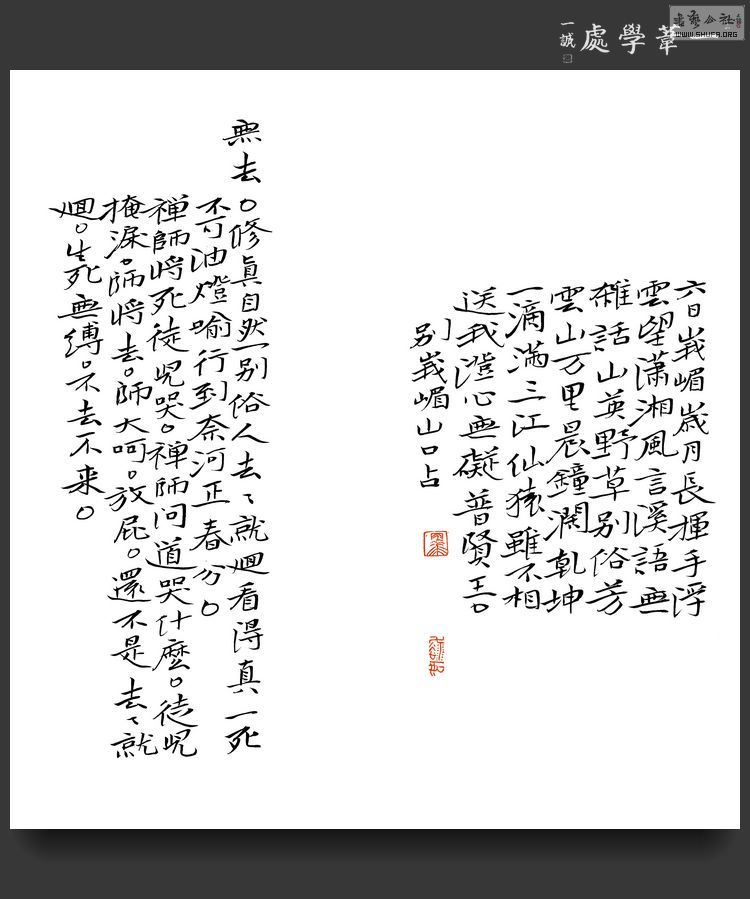 一葦學處
一誠
書藝公社
WWW.SHUFA.ORG
六日峩嵋歲月長揮手浮
雲望瀟湘風言溪語無
雜話山英野草别俗芳
雲山万里晨鐘瀾乾坤
一滴滿三江仙猿雖不相
送我澄心無礙普賢王。
别峩嵋山口占
無去。修眞自然一别俗人去、就迴看得真一死
不可油燈喻行到奈河正春分。
禪師將死徒児哭。禪師问道哭什麽。徒児
掩淚。師將去。師大呵。放屁。還不是去、就
迴。生死無縛。不去不来。